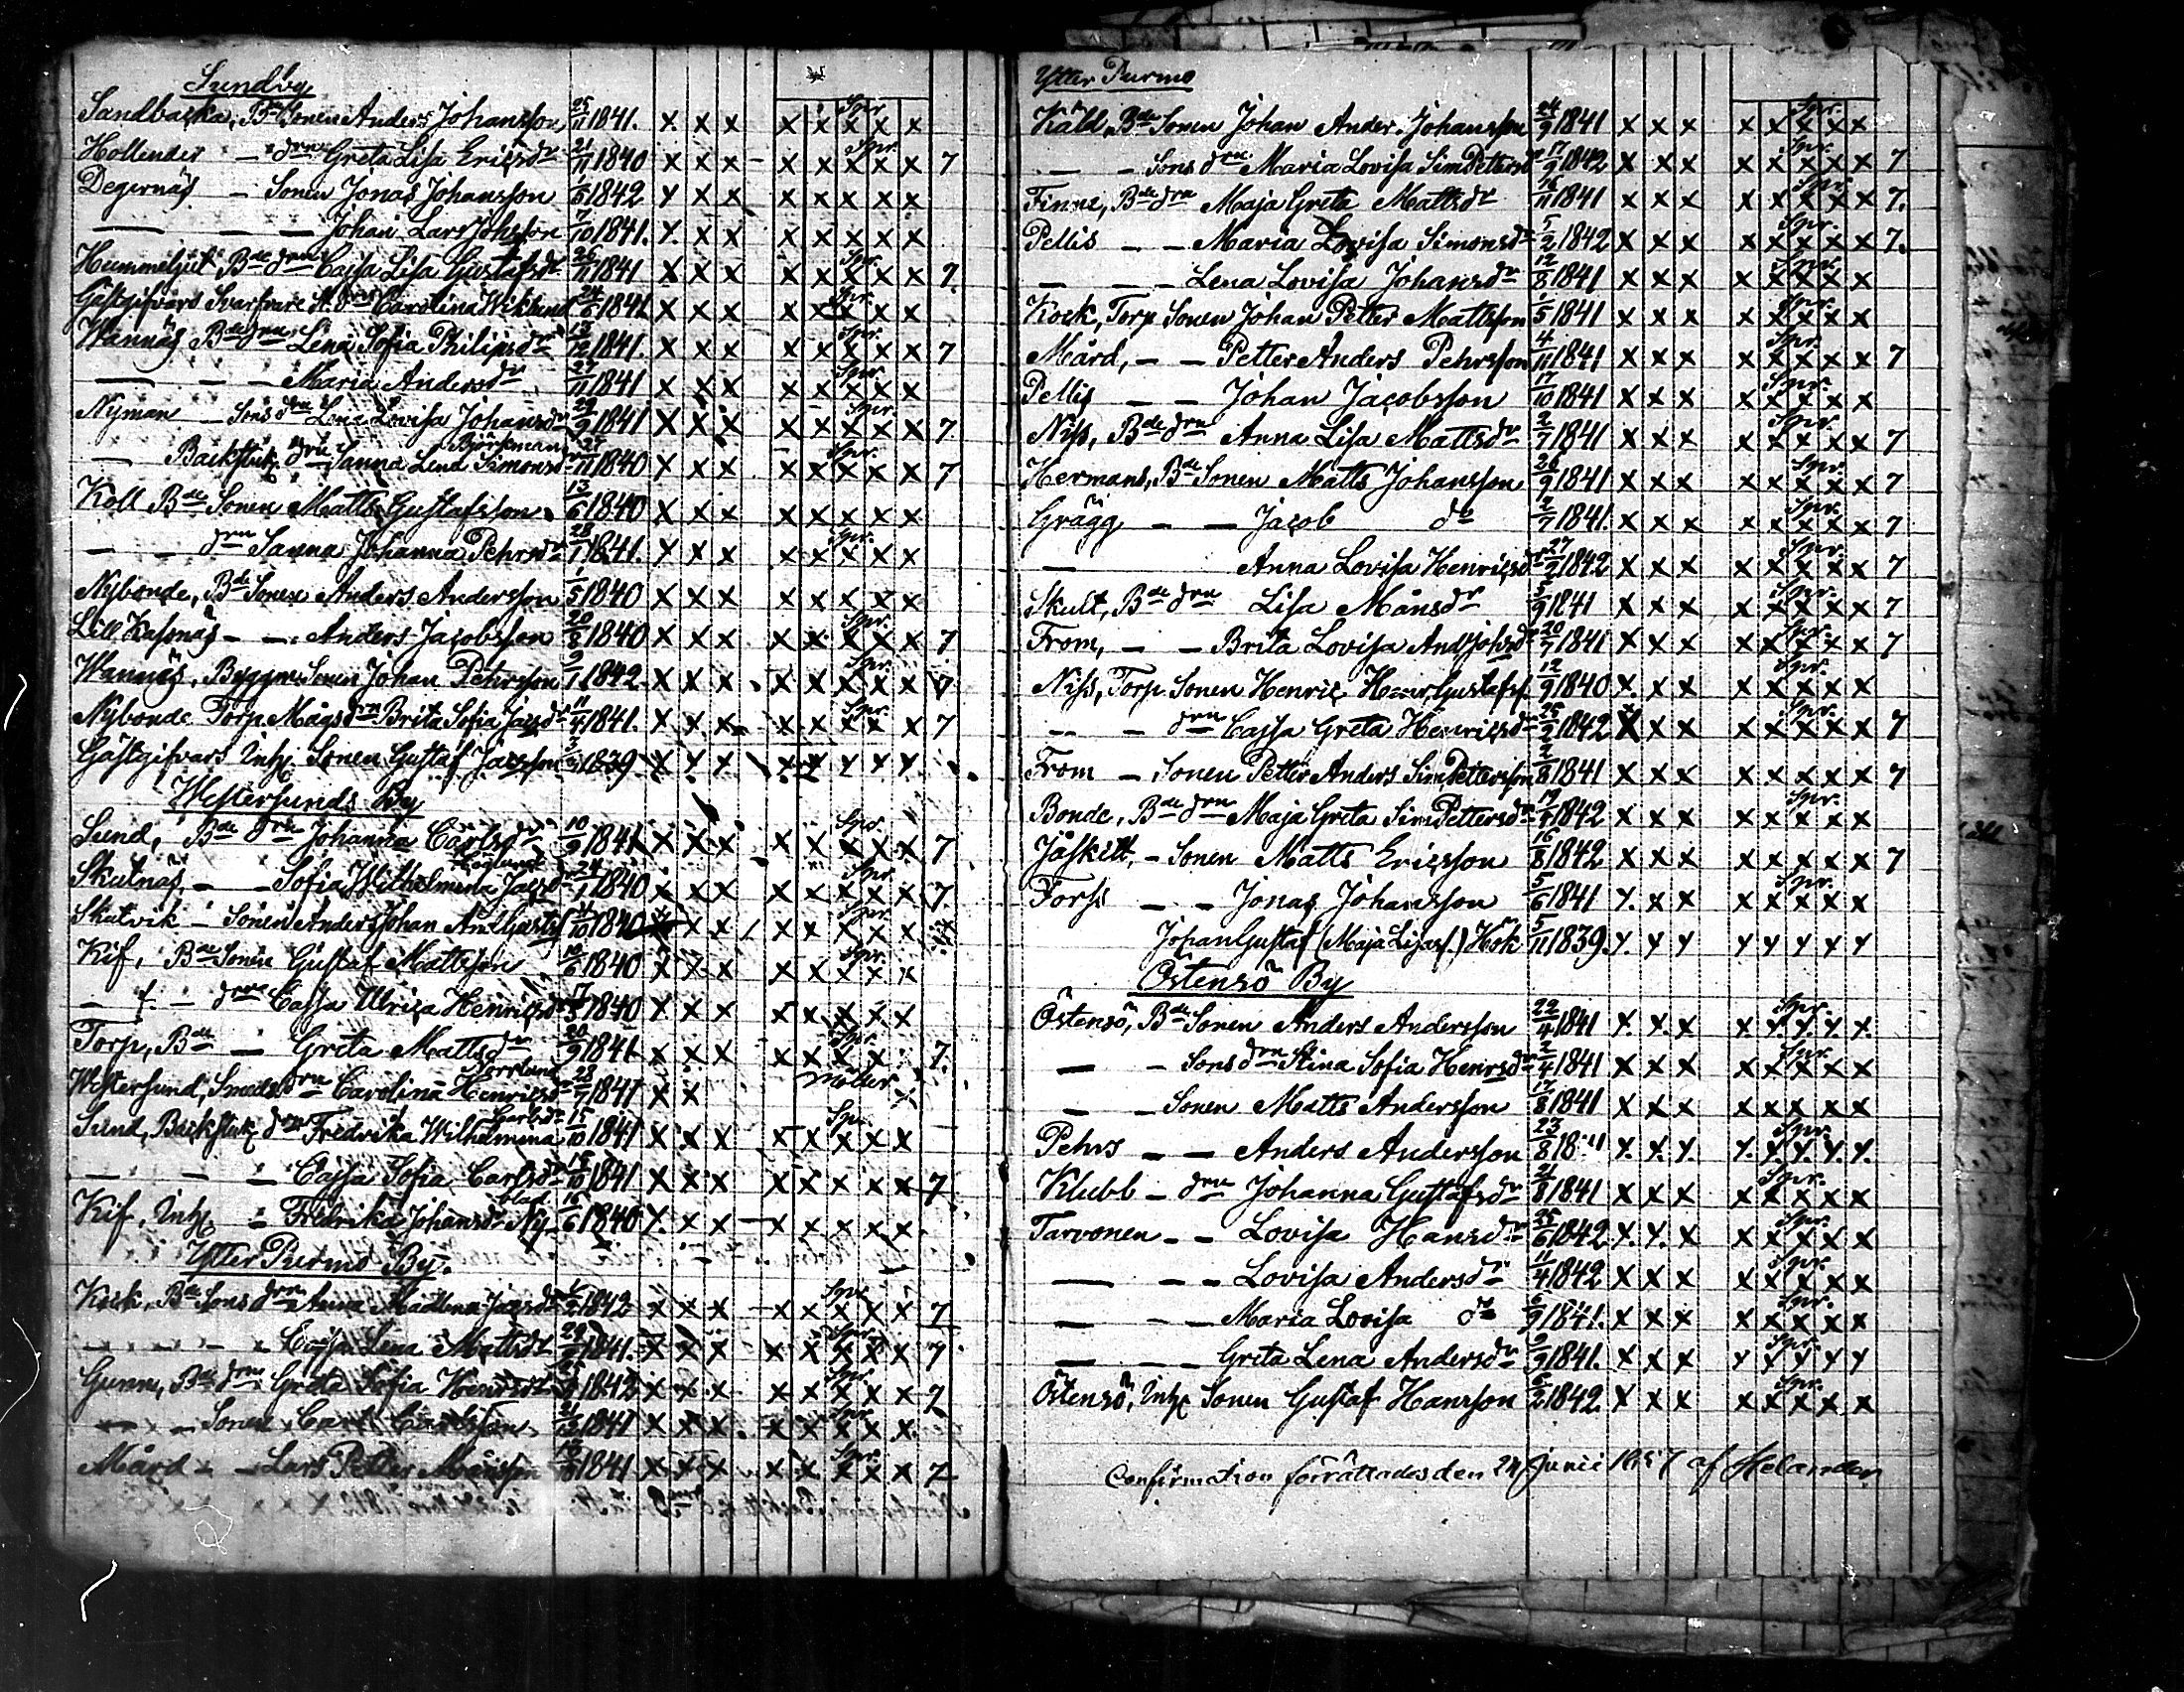 Sundby
Sandbacka, Bde Sonen Anders Johansson 25/11 1841. x x x x x x x x Spr.
Hollender — drn Greta Lisa Ericsdr 21/11 1840 x x x x x x x x Spr. 7
Degernäs — Sonen Jonas Johansson 1842 x x x x x x x x
— — — Johan Lars Johsson 7/10 1841. x x x x x x x x
Bde drn Cajsa Lisa Gustafsdr 26/11 1841 x x x x x x x x Spr. 7
Gästgifvars Svarfvare drn Carolina Wiklund 24/6 1841 x x x x x x x x Spr.
Wannäs Bde drn Lena Sofia Philipsdr 13/12 1841. x x x x x x x x Spr. 7
— — — Maria Andersdr 27/11 1841 x x x x x x x x Spr.
Nyman — Sons drn Lena Lovisa Johansdr 29/9 1841 x x x x x x x x Spr. 7
Björkman
— Backstuk drn Sanna Lena Simonsdr 27/11 1840 x x x x x x x x Spr. 7
Koll Bde Sonen Matts Gustafsson 13/6 1840 x x x x x x x x
— — drn Sanna Johanna Pehrsdr 28/1 1841. x x x x x x x x Spr.
Nybonde, Bde Sonen Anders Andersson 1/5 1840 x x x x x x x x
Lill Kasonäs — — Anders Jacobsson 20/8 1840 x x x x x x x x Spr. 7
Wannäs, Byggm. Sonen Johan Pehrsson 9/1 1842 x x x x x x x x Spr. 7
Nybonde Torp Mågs drn Brita Sofia Jacsdr 11/4 1841. x x x x x x x x Spr. 7
Gästgifvars Inhs. Sonen Gustaf Jacsson 1839 x x x x x x x x
Westersunds By
Sund, Bde drn Johanna Carlsdr 10/9 1841 x x x x x x x x Spr. 7
Skutnäs, — — Sofia Wilhelmina Jacsdr 24/1 1840 x x x x x x x x Spr. 7
Skutvik — Sonen Anders Johan And.Gustsf 4/10 1840 x x x x x x x x Spr.
Kif, Bde Sonen Gustaf Mattsson 1840 x x x x x x x x Spr.
— — drn Cajsa Ulrica Henricsdr 1840 x x x x x x x x
Torp, Bde — Greta Mattsdr 20/9 1841 x x x x x x x x Spr. 7
Norrlund
Westersund, Smeds drn Carolina Henricsdr 28/7 1841 x x x
Carlsdr
Sund, Backstuk drn Fredrika Wilhelmina 15/10 1841 x x x x x x x x Spr.
— — — Cajsa Sofia Carlsdr 15/10 1841 x x x x x x x x 7
blad
Kif, Inhs — Fredrika Johansdr Ny- 16/6 1840 x x x x x x x x
Ytter Purmo By.
Kock, Bde Sons drn Anna Madlena Jacsdr 1842 x x x x x x x x Spr. 7
— — — Cajsa Lena Mattsdr 1841. x x x x x x x x Spr. 7
Gunne, Bde drn Greta Sofia Henricsdr 1842 x x x x x x x x Spr. 7
— — Sonen Carl Carlsson 21/12 1841 x x x x x x x x Spr.
Mård — — Lars Petter Månsson 1841 x x x x x x x x Spr. 7
Ytter Purmo
Käld, Bde Sonen Johan Ander. Johansson 24/9 1841 x x x x x x x x Spr.
— — Sons drn Maria Lovisa Sim Pettersdr 17/9 1842 x x x x x x x x Spr. 7
Finne, Bde drn Maja Greta Mattsdr 16/11 1841 x x x x x x x x Spr. 7.
Pellis — — Maria Lovisa Simonsdr 5/2 1842 x x x x x x x x Spr. 7.
— — — Lena Lovisa Johansdr 12/8 1841 x x x x x x x x Spr.
Kock, Torp Sonen Johan Petter Mattsson 1/5 1841 x x x x x x x x Spr.
Mård, — — Petter Anders Pehrsson 4/11 1841 x x x x x x x x Spr. 7
Pellis — — Johan Jacobsson 17/10 1841 x x x x x x x x Spr.
Niss, Bde drn Anna Lisa Mattsdr 2/7 1841 x x x x x x x x Spr. 7
Hermans, Bde Sonen Matts Johansson 26/9 1841 x x x x x x x x Spr. 7
Grägg — — Jacob do 2/7 1841. x x x x x x x x Spr. 7
— Anna Lovisa Henricsdr 27/9 1842 x x x x x x x x Spr. 7
Skult, Bde drn Lisa Månsdr 3/9 1841 x x x x x x x x Spr. 7
From, — — Brita Lovisa And Johsdr 20/7 1841 x x x x x x x x Spr. 7
Niss, Torp Sonen Henric Henr. Gustafsf. 12/9 1840 x x x x x x x x Spr.
— — drn Cajsa Greta Henricsdr 25/2 1842 x x x x x x x x Spr. 7
From — Sonen Petter Anders Sim Pettersson 2/8 1841 x x x x x x x x 7
Bonde, Bde drn Maja Greta Sim Pettersdr 1842 x x x x x x x x Spr.
Jåskett, — Sonen Matts Ericsson 16/8 1842 x x x x x x x x 7
Forss — — Jonas Johansson 5/6 1841 x x x x x x x x Spr.
Johan Gustaf (Maja Lisas s.) Hök 5/11 1839. x x x x x x x x
Östensö By
Östensö, Bde Sonen Anders Andersson 22/4 1841 x x x x x x x x Spr.
— — Sons drn Stina Sofia Henrsdr 2/4 1841 x x x x x x x x Spr.
— — Sonen Matts Andersson 17/8 1841 x x x x x x x x
Pehrs — — Anders Andersson 23/8 1841 x x x x x x x x Spr.
Klubb — drn Johanna Gustafsdr 21/8 1841 x x x x x x x x Spr.
Tarvonen — — Lovisa Hansdr 25/6 1842 x x x x x x x x Spr.
— — — Lovisa Andersdr 11/4 1842 x x x x x x x x Spr.
— — — Maria Lovisa do 6/9 1841. x x x x x x x x Spr.
— — — Greta Lena Andersdr 9/9 1841. x x x x x x x x Spr.
Östensö, Inhs Sonen Gustaf Hansson 6/2 1842 x x x x x x x x Spr.
Confirmation förrättades den 24 Junii 1857 af Helander